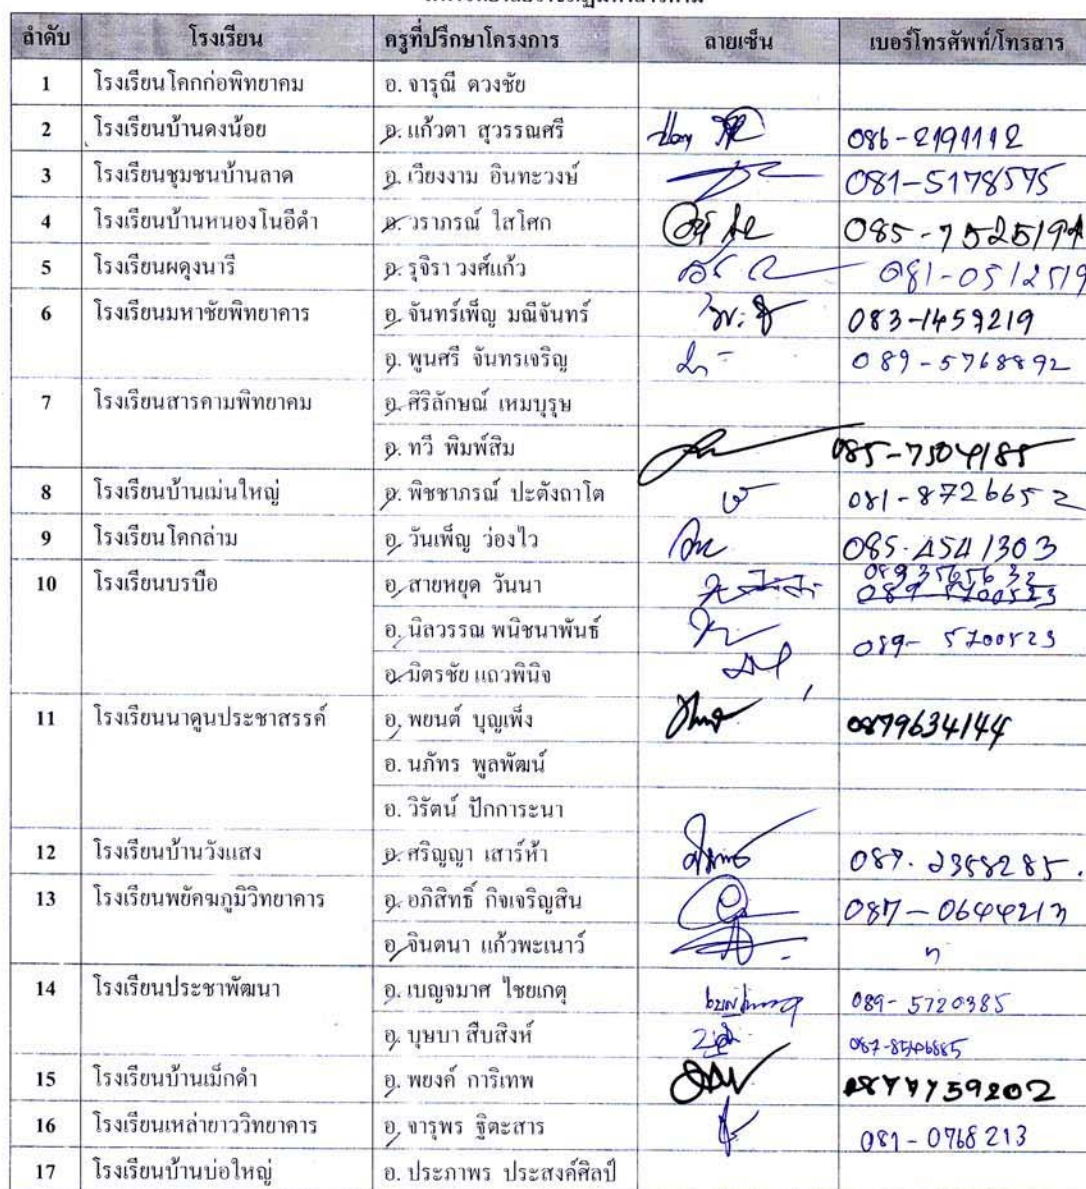 ลำดับ โรงเรียน ครูที่ปรึกษาโครงการ ลายเซ็น เบอร์โทรศัพท์/โทรสาร
1 โรงเรียนโคกก่อพิทยาคม อ. จารุณี ดวงชัย
2 โรงเรียนบ้านดงน้อย อ. แก้วตา สุวรรณศรี 086-2191112
3 โรงเรียนชุมชนบ้านลาด อ. เวียงงาม อินทะวงษ์ 081-5178575
4 โรงเรียนบ้านหนองโนอีดำ อ. วราภรณ์ ใสโศก
5 โรงเรียนผดุงนารี อ. รุจิรา วงศ์แก้ว 081-0512519
6 โรงเรียนมหาชัยพิทยาคาร อ. จันทร์เพ็ญ มณีจันทร์ 083-1459219
อ. พูนศรี จันทรเจริญ 089-5768892
7 โรงเรียนสารคามพิทยาคม อ. ศิริลักษณ์ เหมบุรุษ
อ. ทวี พิมพ์สิม 085-7504185
8 โรงเรียนบ้านเม่นใหญ่ อ. พิชชาภรณ์ ปะตังถาโต 081-8726652
9 โรงเรียนโคกล่าม อ. วันเพ็ญ ว่องไว 085-4541303
10 โรงเรียนบรบือ อ. สายหยุด วันนา
อ. นิลวรรณ พนิชนาพันธ์ 089-5700523
อ. มิตรชัย แถวพินิจ
11 โรงเรียนนาดูนประชาสรรค์ อ. พยนต์ บุญเพ็ง 0879634144
อ. นภัทร พูลพัฒน์
อ. วิรัตน์ ปักการะนา
12 โรงเรียนบ้านวังแสง อ. ศริญญา เสาร์ห้า 087-2358285.
13 โรงเรียนพยัคฆภูมิวิทยาคาร อ. อภิสิทธิ์ กิจเจริญสิน 087-0644213
อ. จินตนา แก้วพะเนาว์
14 โรงเรียนประชาพัฒนา อ. เบญจมาศ ไชยเกตุ 089-5720385
อ. บุษบา สืบสิงห์
15 โรงเรียนบ้านเม็กดำ อ. พยงค์ การิเทพ
16 โรงเรียนเหล่ายาววิทยาคาร อ. จารุพร ฐิตะสาร 081-0768213
17 โรงเรียนบ้านบ่อใหญ่ อ. ประภาพร ประสงค์ศิลป์